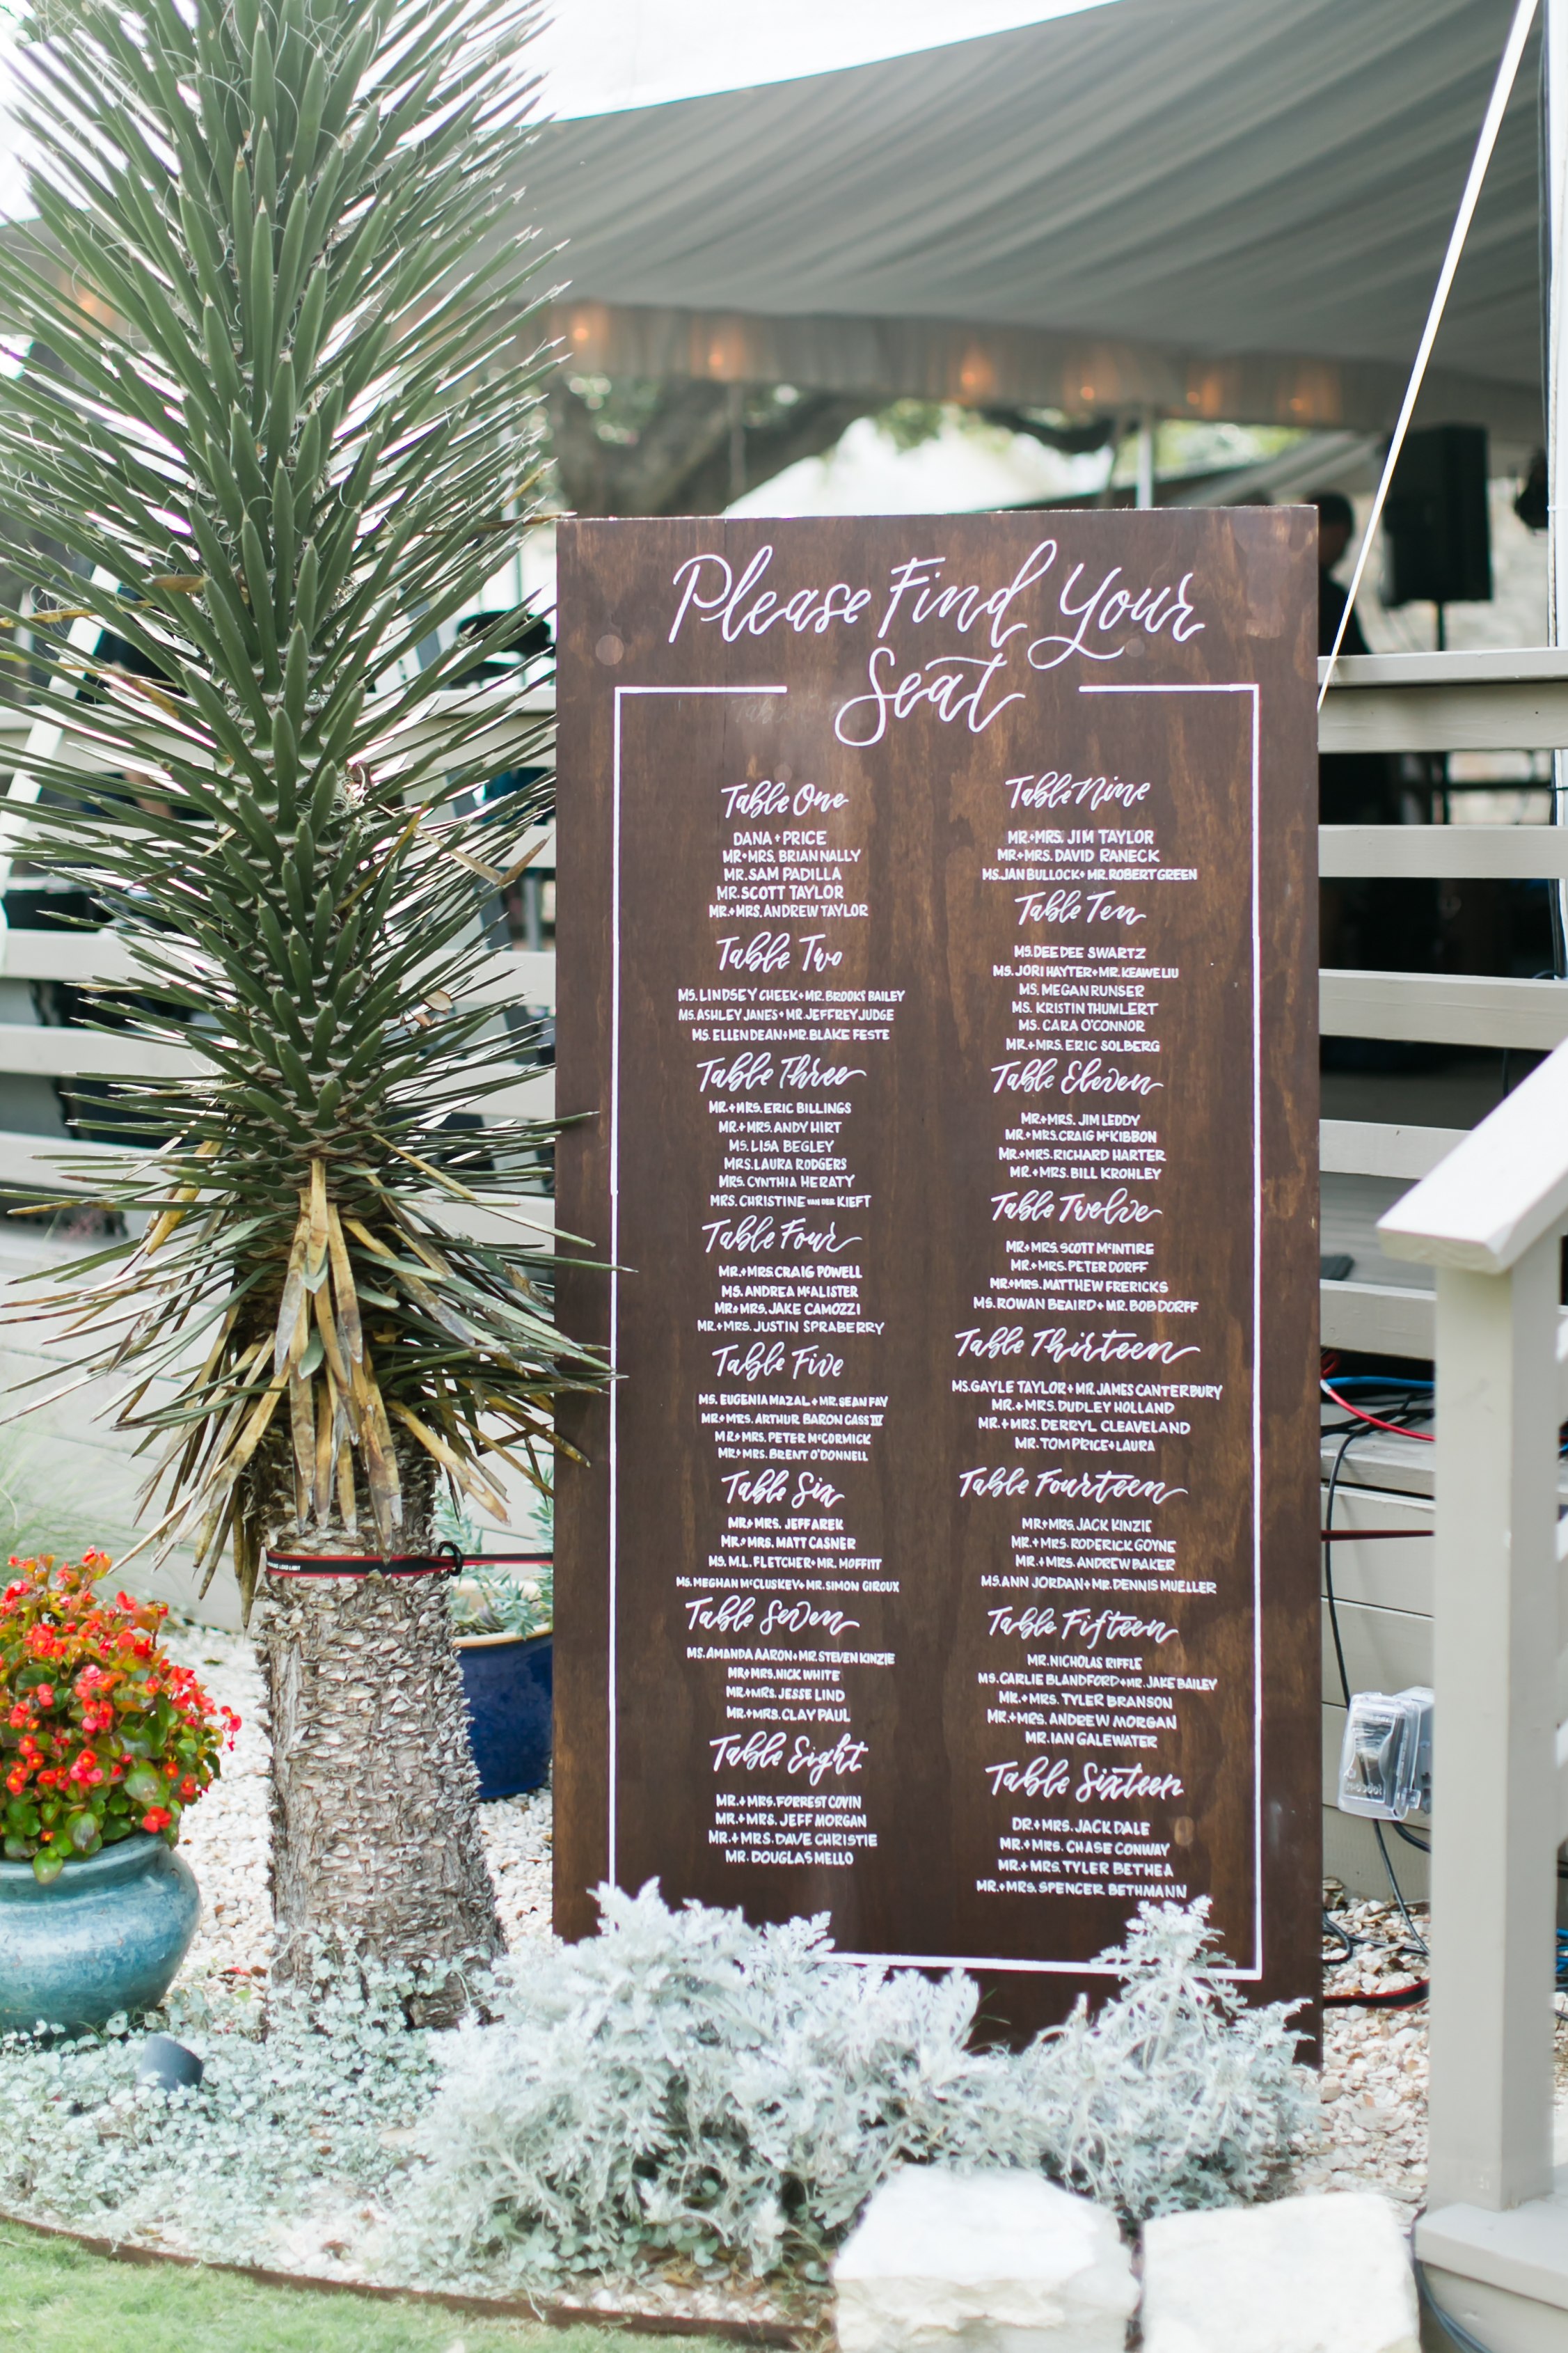 Please Find Your
Seat
Table One
DANA + PRICE
MR+MRS. BRIAN NALLY
MR. SAM PADILLA
MR. SCOTT TAYLOR
MR.+MRS. ANDREW TAYLOR
Table Two
MS. LINDSEY CHEEK+MR. BROOKS BAILEY
MS. ASHLEY JANES+MR. JEFFREY JUDGE
MS. ELLEN DEAN+MR. BLAKE FESTE
Table Three
MR.+MRS. ERIC BILLINGS
MR.+MRS. ANDY HIRT
MS. LISA BEGLEY
MRS. LAURA RODGERS
MRS. CYNTHIA HERATY
MRS. CHRISTINE VAN DER KIEFT
Table Four
MR.+MRS. CRAIG POWELL
MS. ANDREA McALISTER
MR+MRS. JAKE CAMOZZI
MR.+MRS. JUSTIN SPRABERRY
Table Five
MS. EUGENIA MAZAL+MR. SEAN FAY
MR+MRS. ARTHUR BARON CASS IV
MR+MRS. PETER McCORMICK
MR+MRS. BRENT O'DONNELL
Table Six
MR+MRS. JEFF AREK
MR+MRS. MATT CASNER
MS. M.L. FLETCHER+MR. MOFFITT
MS. MEGHAN McCLUSKEY+MR. SIMON GIROUX
Table Seven
MS. AMANDA AARON+MR. STEVEN KINZIE
MR+MRS. NICK WHITE
MR+MRS. JESSE LIND
MR.+MRS. CLAY PAUL
Table Eight
MR.+MRS. FORREST COVIN
MR.+MRS. JEFF MORGAN
MR.+MRS. DAVE CHRISTIE
MR. DOUGLAS MELLO
Table Nine
MR.+MRS. JIM TAYLOR
MR.+MRS. DAVID RANECK
MS. JAN BULLOCK+MR. ROBERT GREEN
Table Ten
MS. DEE DEE SWARTZ
MS. JORI HAYTER+MR. KEAWE LIU
MS. MEGAN RUNSER
MS. KRISTIN THUMLERT
MS. CARA O'CONNOR
MR.+MRS. ERIC SOLBERG
Table Eleven
MR.+MRS. JIM LEDDY
MR.+MRS. CRAIG McKIBBON
MR.+MRS. RICHARD HARTER
MR.+MRS. BILL KROHLEY
Table Twelve
MR.+MRS. SCOTT McINTIRE
MR.+MRS. PETER DORFF
MR.+MRS. MATTHEW FRERICKS
MS. ROWAN BEAIRD+MR. BOB DORFF
Table Thirteen
MS. GAYLE TAYLOR+MR. JAMES CANTERBURY
MR.+MRS. DUDLEY HOLLAND
MR.+MRS. DERRYL CLEAVELAND
MR. TOM PRICE+LAURA
Table Fourteen
MR+MRS. JACK KINZIE
MR.+MRS. RODERICK GOYNE
MR.+MRS. ANDREW BAKER
MS. ANN JORDAN+MR. DENNIS MUELLER
Table Fifteen
MR. NICHOLAS RIFFLE
MS. CARLIE BLANDFORD+MR. JAKE BAILEY
MR.+MRS. TYLER BRANSON
MR.+MRS. ANDREW MORGAN
MR. IAN GALEWATER
Table Sixteen
DR.+MRS. JACK DALE
MR.+MRS. CHASE CONWAY
MR.+MRS. TYLER BETHEA
MR.+MRS. SPENCER BETHMANN